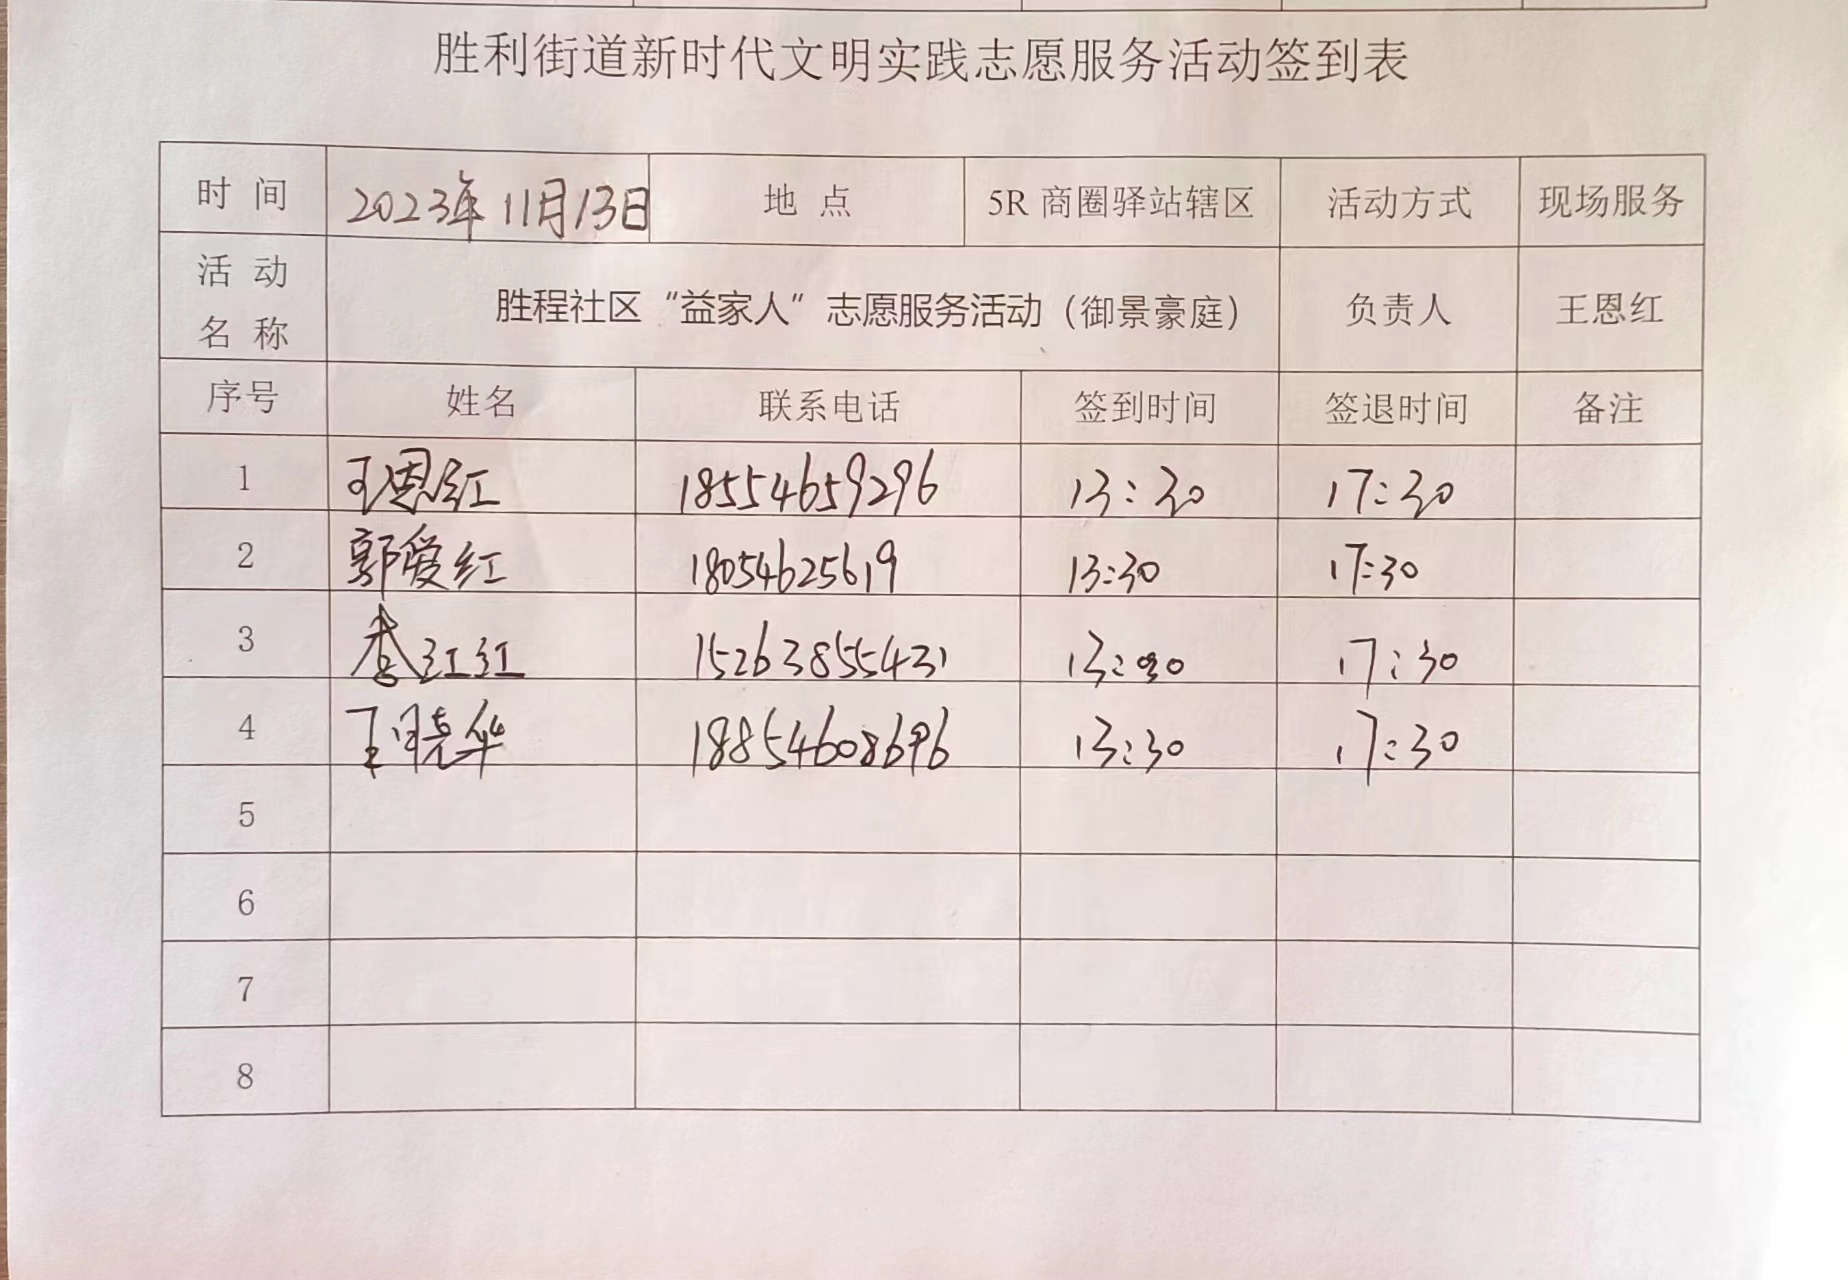 胜利街道新时代文明实践志愿服务活动签到表
时 间 2023年11月13日 地 点 5R 商圈驿站辖区 活动方式 现场服务
活 动 名 称 胜程社区“益家人”志愿服务活动（御景豪庭） 负责人 王恩红
序号 姓名 联系电话 签到时间 签退时间 备注
1 王恩红 18554659296 13:30 17:30
2 郭爱红 18054625619 13:30 17:30
3 红红 15263855431 13:30 17:30
4 王晓华 18854608696 13:30 17:30
5
6
7
8